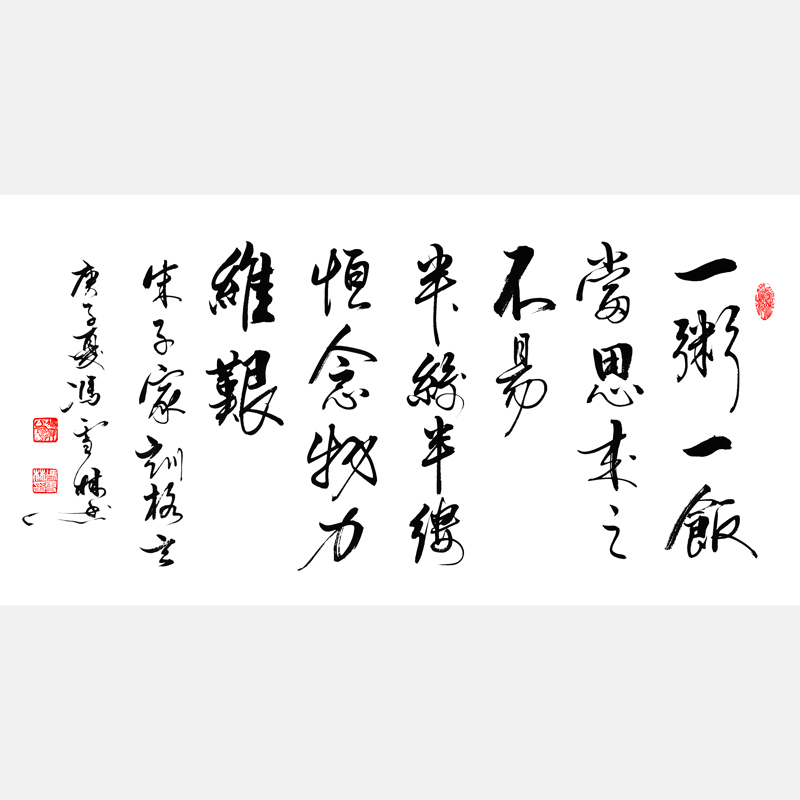 一粥一飯
當思来之
不易
半絲半縷
恒念物力
維艱
朱子家訓格言
庚子夏馮雪林書